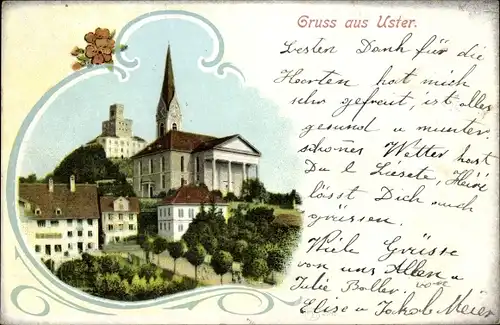 Gruss aus Uster.
Besten Dank für die
Karten hat mich
sehr gefreut, ist alles
gesund u munter.
schönes Wetter hast
Du l Liseli,
lässt Dich auch
grüssen.
Viele Grüsse
von uns Allen u
Julie Boller, von
Elise u Jakob Meier